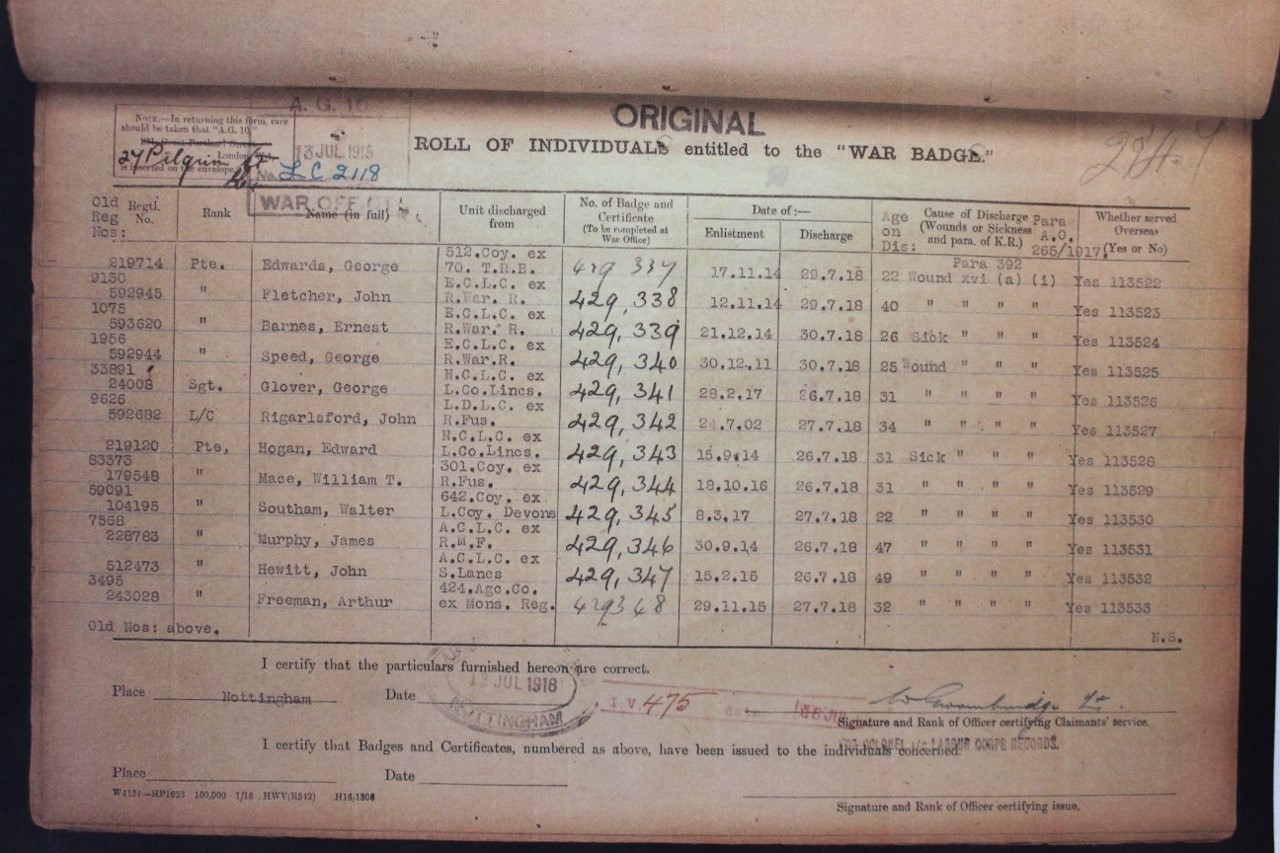 NOTE.—In returning this form, care
should be taken that "A.G. 10,"
27 Pilgrim St
London
is inserted on the envelope.
A. G. 10
13 JUL 1918
No. LC 2118
WAR OFFICE
ORIGINAL
ROLL OF INDIVIDUALS entitled to the "WAR BADGE."
Old Reg Nos: Regtl. No. Rank Name (in full) Unit discharged from No. of Badge and Certificate (To be completed at War Office) Date of:— Enlistment Discharge Age on Dis: Cause of Discharge (Wounds or Sickness and para. of K.R.) Para A.O. 265/1917. Whether served Overseas (Yes or No)
512.Coy. ex Para 392
219714 Pte. Edwards, George 70. T.R.B. 429 337 17.11.14 29.7.18 22 Wound xvi (a) (i) Yes 113522
9130 E.C.L.C. ex
592945 " Fletcher, John R.War. R. 429,338 12.11.14 29.7.18 40 " " " " Yes 113523
1075 E.C.L.C. ex
593620 " Barnes, Ernest R.War. R. 429,339 21.12.14 30.7.18 26 Sick " " " Yes 113524
1956 E.C.L.C. ex
592944 " Speed, George R.War.R. 429,340 30.12.11 30.7.18 25 Wound " " " Yes 113525
33891 N.C.L.C. ex
24008 Sgt. Glover, George L.Co.Lincs. 429,341 28.2.17 26.7.18 31 " " " " Yes 113526
9626 L.D.L.C. ex
592682 L/C Rigarlsford, John R.Fus. 429,342 24.7.02 27.7.18 34 " " " " Yes 113527
N.C.L.C. ex
219120 Pte, Hogan, Edward L.Co.Lincs. 429,343 15.9.14 26.7.18 31 Sick " " " Yes 113528
83373 301.Coy. ex
179548 " Mace, William T. R.Fus. 429,344 18.10.16 26.7.18 31 " " " " Yes 113529
59091 642.Coy. ex
104195 " Southam, Walter L.Coy. Devons 429,345 8.3.17 27.7.18 22 " " " " Yes 113530
7568 A.C.L.C. ex
228783 " Murphy, James R.M.F. 429,346 30.9.14 26.7.18 47 " " " " Yes 113531
A.C.L.C. ex
512473 " Hewitt, John S.Lancs 429,347 15.2.15 26.7.18 49 " " " " Yes 113532
3495 424.Agc.Co.
243028 " Freeman, Arthur ex Mons. Reg. 429348 29.11.15 27.7.18 32 " " " " Yes 113533
Old Nos: above.
N.S.
I certify that the particulars furnished hereon are correct.
Place Nottingham Date 12 JUL 1918
NOTTINGHAM
I V 475 date
Signature and Rank of Officer certifying Claimants' service.
FOR COLONEL i/c LABOUR CORPS RECORDS.
I certify that Badges and Certificates, numbered as above, have been issued to the individuals concerned.
Place Date
W4134—HP1623 100,000 1/18 HWV(R542) H16/1306
Signature and Rank of Officer certifying issue.